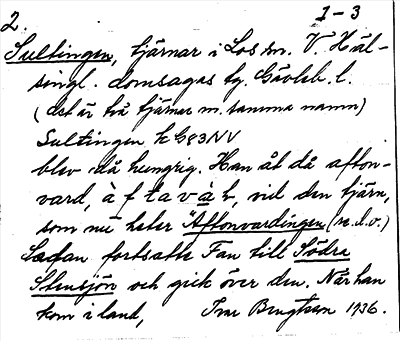 2. 1-3
Sultingen, tjärnar i Los sn. V. Häl-
singl. domsagas tg. Gävleb. l.
(det är två tjärnar m. samma namn)
Sultingen k G83NV
blev då hungrig. Han åt då afton-
vard, à f t a v à ḷ, vid den tjärn,
som nu heter "Aftonvardingen (se d. o.)
Sedan fortsatte Fan till Södra
Slensjön och gick över den. När han
kom i land, Ivar Bengtsson 1936.